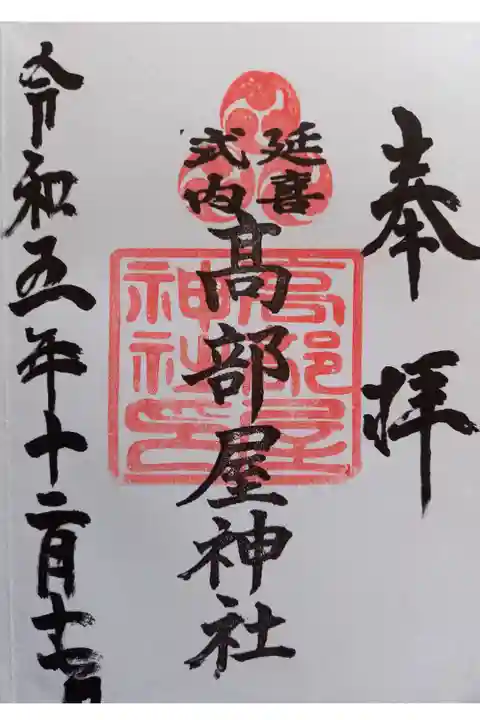 奉拝
延喜
式内
髙部屋神社
令和五年十二月十七日
髙部屋
神社印